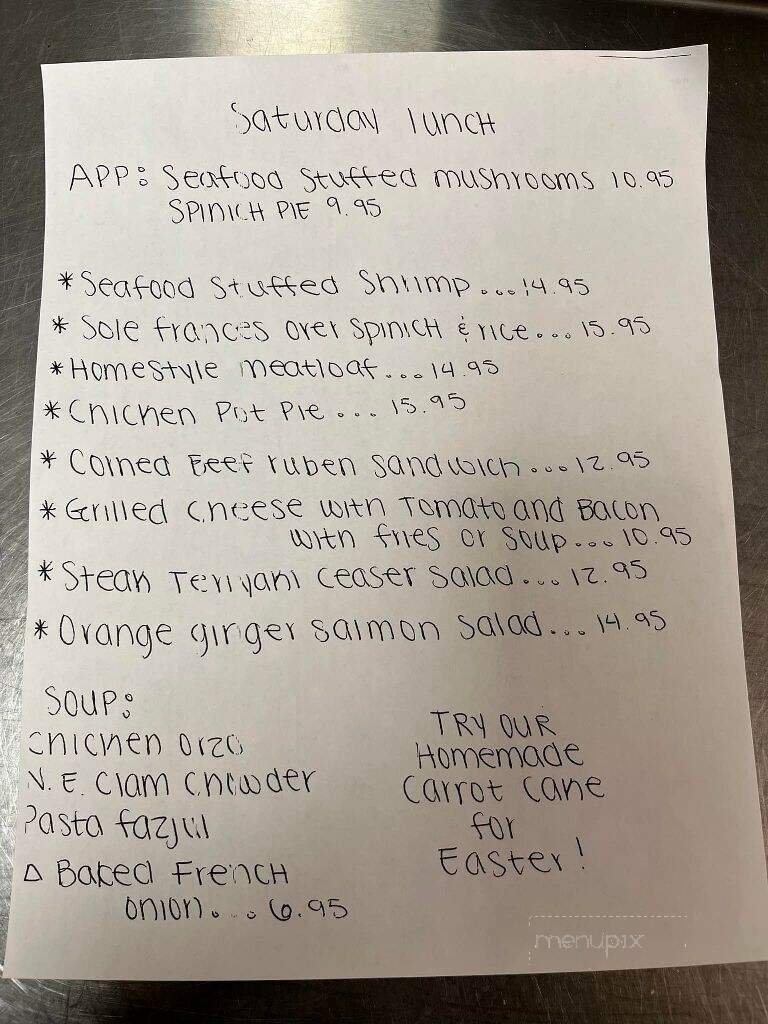 Saturday lunch
APP: Seafood Stuffed mushrooms 10.95
SPINICH PIE 9.95
* Seafood Stuffed Shrimp...14.95
* Sole frances over SPINICH & rice...15.95
* Homestyle meatloaf...14.95
* Chicken Pot Pie...15.95
* Corned Beef ruben sandwich...12.95
* Grilled Cheese with Tomato and Bacon
with fries or soup...10.95
* Steak Teriyaki ceaser salad...12.95
* Orange ginger salmon salad...14.95
SOUP:
Chicken orzo
N.E. Clam Chowder
Pasta fazjul
△ Baked French
onion...6.95
TRY OUR
Homemade
Carrot Cake
for
Easter!
menupix